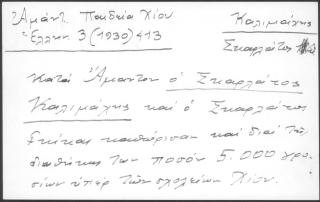 Ἀμάντ. Παιδεία Χίου
Ἑλλην 3 (1930) 413
Καλιμάχης
Σκαρλᾶτος
Κατά Ἄμαντον ὁ Σκαρλᾶτος
Καλιμάχης καί ὁ Σκαρλᾶτος
Γκίκας καθώρισαν καί διά τῆς
διαθήκης των ποσόν 5.000 γρο-
σίων ὑπέρ τῶν σχολείων Χίου.